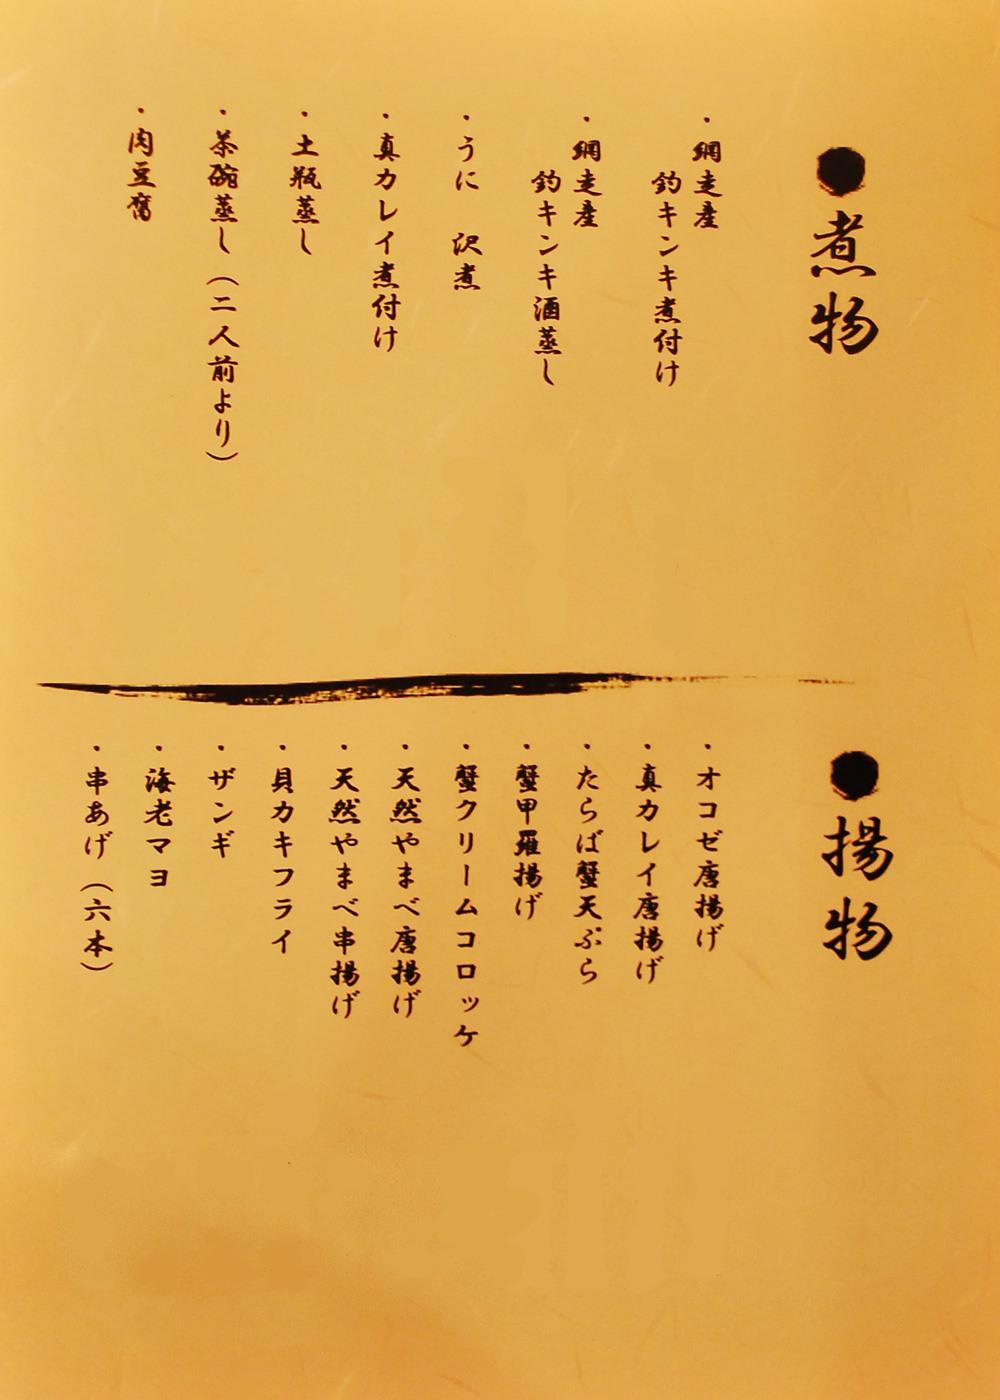 ●煮物
・網走産
釣キンキ煮付け
・網走産
釣キンキ酒蒸し
・うに 沢煮
・真カレイ煮付け
・土瓶蒸し
・茶碗蒸し（二人前より）
・肉豆腐
●揚物
・オコゼ唐揚げ
・真カレイ唐揚げ
・たらば蟹天ぷら
・蟹甲羅揚げ
・蟹クリームコロッケ
・天然やまべ唐揚げ
・天然やまべ串揚げ
・貝カキフライ
・ザンギ
・海老マヨ
・串あげ（六本）